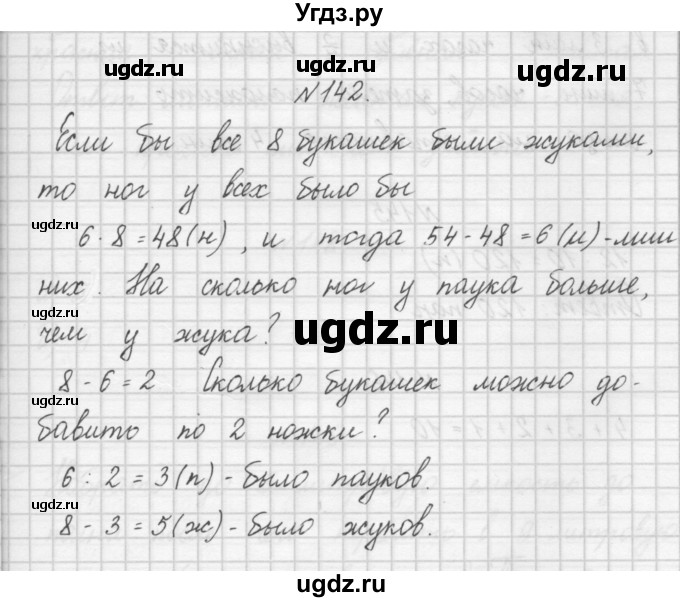 Угдз.ру
ugdz.ru ugdz.ru ugdz.ru
№142.
Если бы все 8 букашек были жуками,
то ног у всех было бы
ugdz.ru
6·8=48(н), и тогда 54-48=6(н)-лиш
них. На сколько ног у паука больше,
чем у жука?
ugdz.ru ugdz.ru
8-6=2 Сколько букашек можно до-
бавить по 2 ножки?
ugdz.ru
6:2=3(п)-было пауков.
ugdz.ru
8-3=5(ж)-было жуков.
ugdz.ru